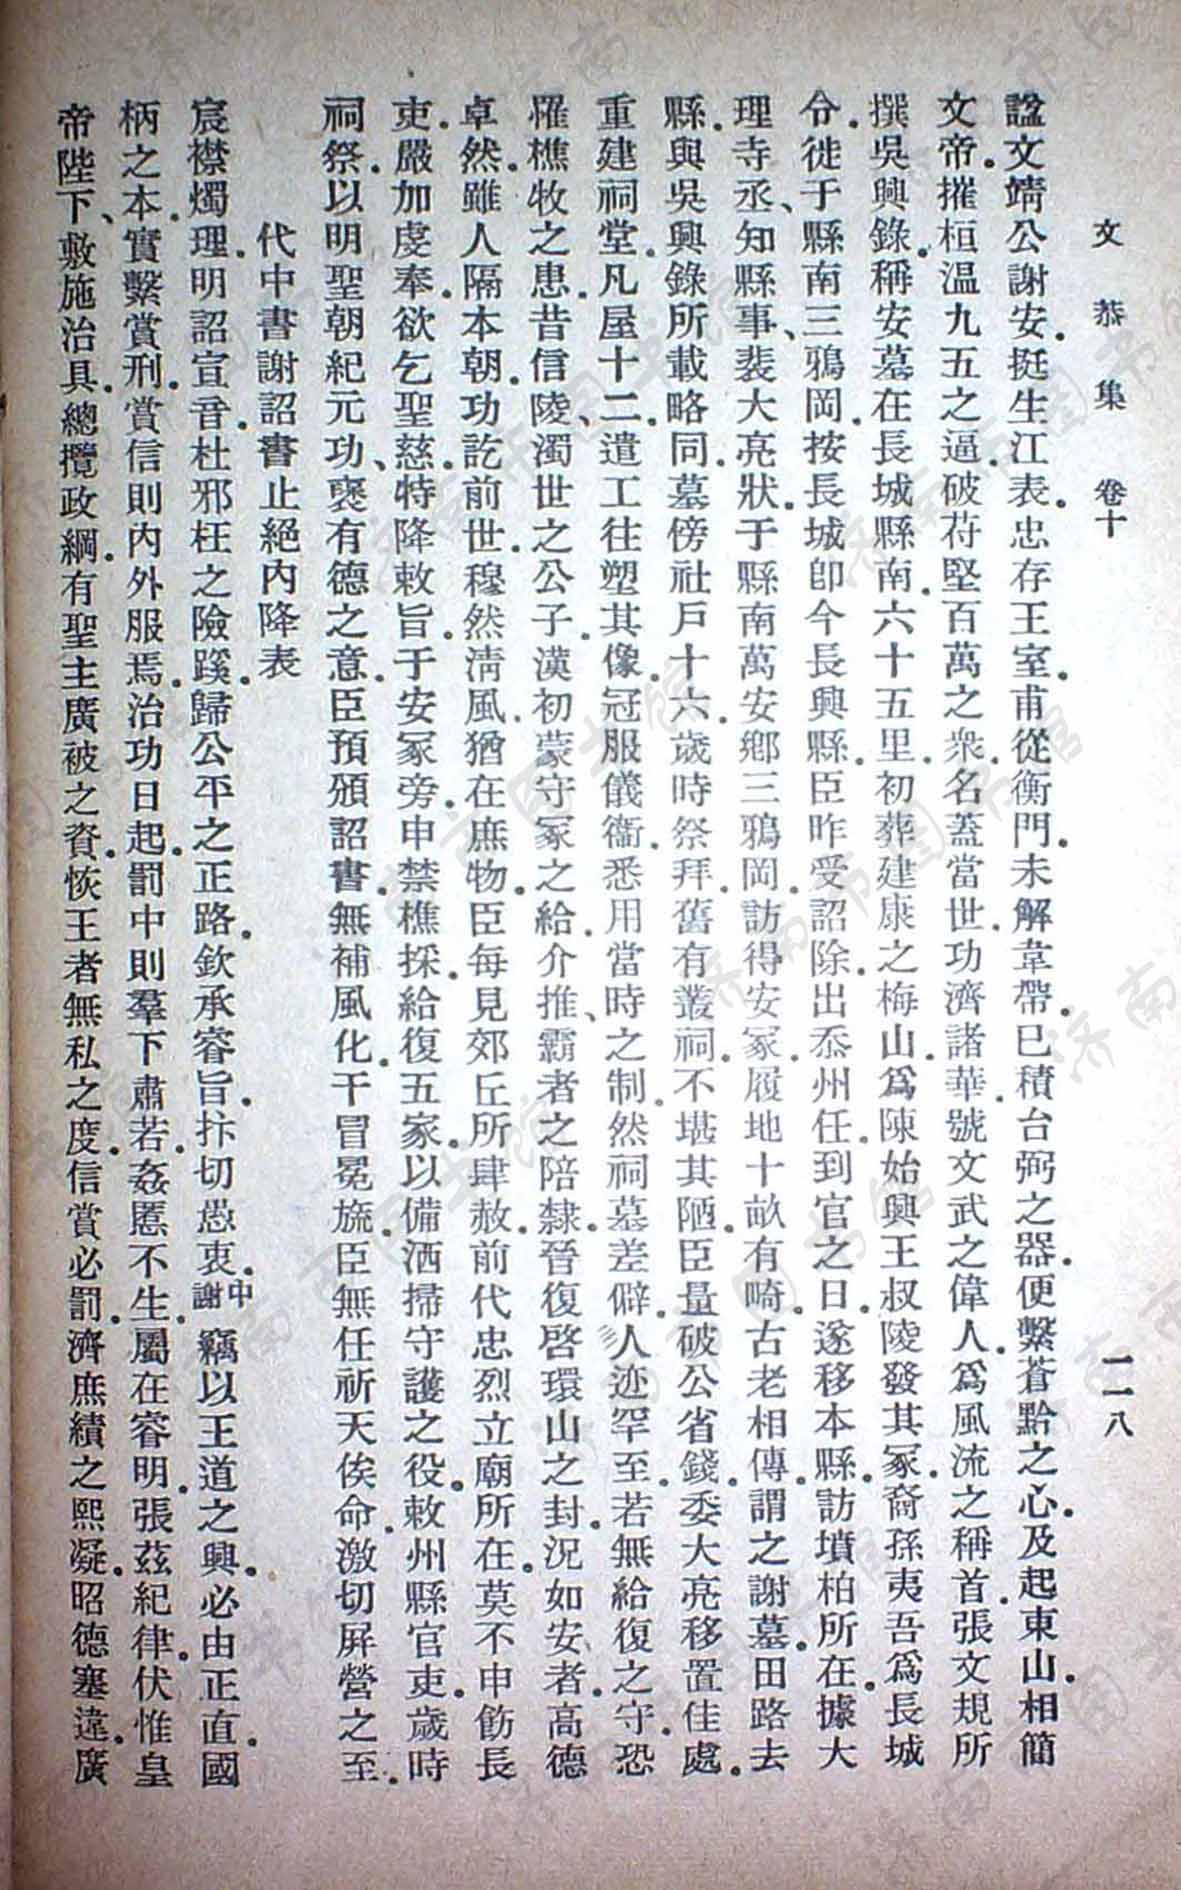 文恭集　卷十　一一八
諡文靖公謝安。挺生江表。忠存王室。甫從衡門。未解韋帶。已積台弼之器。便繫蒼黔之心。及起東山。相簡
文帝。摧桓温九五之逼。破苻堅百萬之衆。名蓋當世。功濟諸華。號文武之偉人。爲風流之稱首。張文規所
撰吳興錄。稱安墓在長城縣南。六十五里。初葬建康之梅山。爲陳始興王叔陵發其冢。裔孫夷吾爲長城
令。徙于縣南三鴉岡。按長城卽今長興縣。臣昨受詔除。出忝州任。到官之日。遂移本縣。訪墳柏所在。據大
理寺丞、知縣事、裴大亮狀。于縣南萬安鄉三鴉岡。訪得安冢。履地十畝有畸。古老相傳。謂之謝墓。田路去
縣。與吳興錄所載略同。墓傍社戶十六。歲時祭拜。舊有叢祠。不堪其陋。臣量破公省錢。委大亮移置佳處。
重建祠堂。凡屋十二、遣工往塑其像。冠服儀衞。悉用當時之制。然祠墓差僻。人迹罕至。若無給復之守。恐
罹樵牧之患。昔信陵、濁世之公子。漢初蒙守冢之給。介推、霸者之陪隸。晉復啓環山之封。況如安者、高德
卓然。雖人隔本朝。功訖前世。穆然淸風。猶在庶物。臣每見郊丘所肆赦。前代忠烈立廟所在。莫不申飭長
吏。嚴加虔奉。欲乞聖慈。特降敕旨。于安冢旁。申禁樵採。給復五家。以備洒掃守護之役。敕州縣官吏。歲時
祠祭。以明聖朝紀元功、襃有德之意。臣預頒詔書。無補風化。干冒冕旒。臣無任祈天俟命。激切屏營之至。
代中書謝詔書止絕內降表
宸襟燭理。明詔宣音。杜邪枉之險蹊。歸公平之正路。欽承睿旨。抃切愚衷。中謝竊以王道之興。必由正直。國
柄之本。實繫賞刑。賞信則內外服焉。治功日起。罰中則羣下肅若。姦慝不生。屬在睿明。張茲紀律。伏惟皇
帝陛下、敷施治具。總攬政綱。有聖主廣被之資。恢王者無私之度。信賞必罰。濟庶績之熙凝。昭德塞違。廣